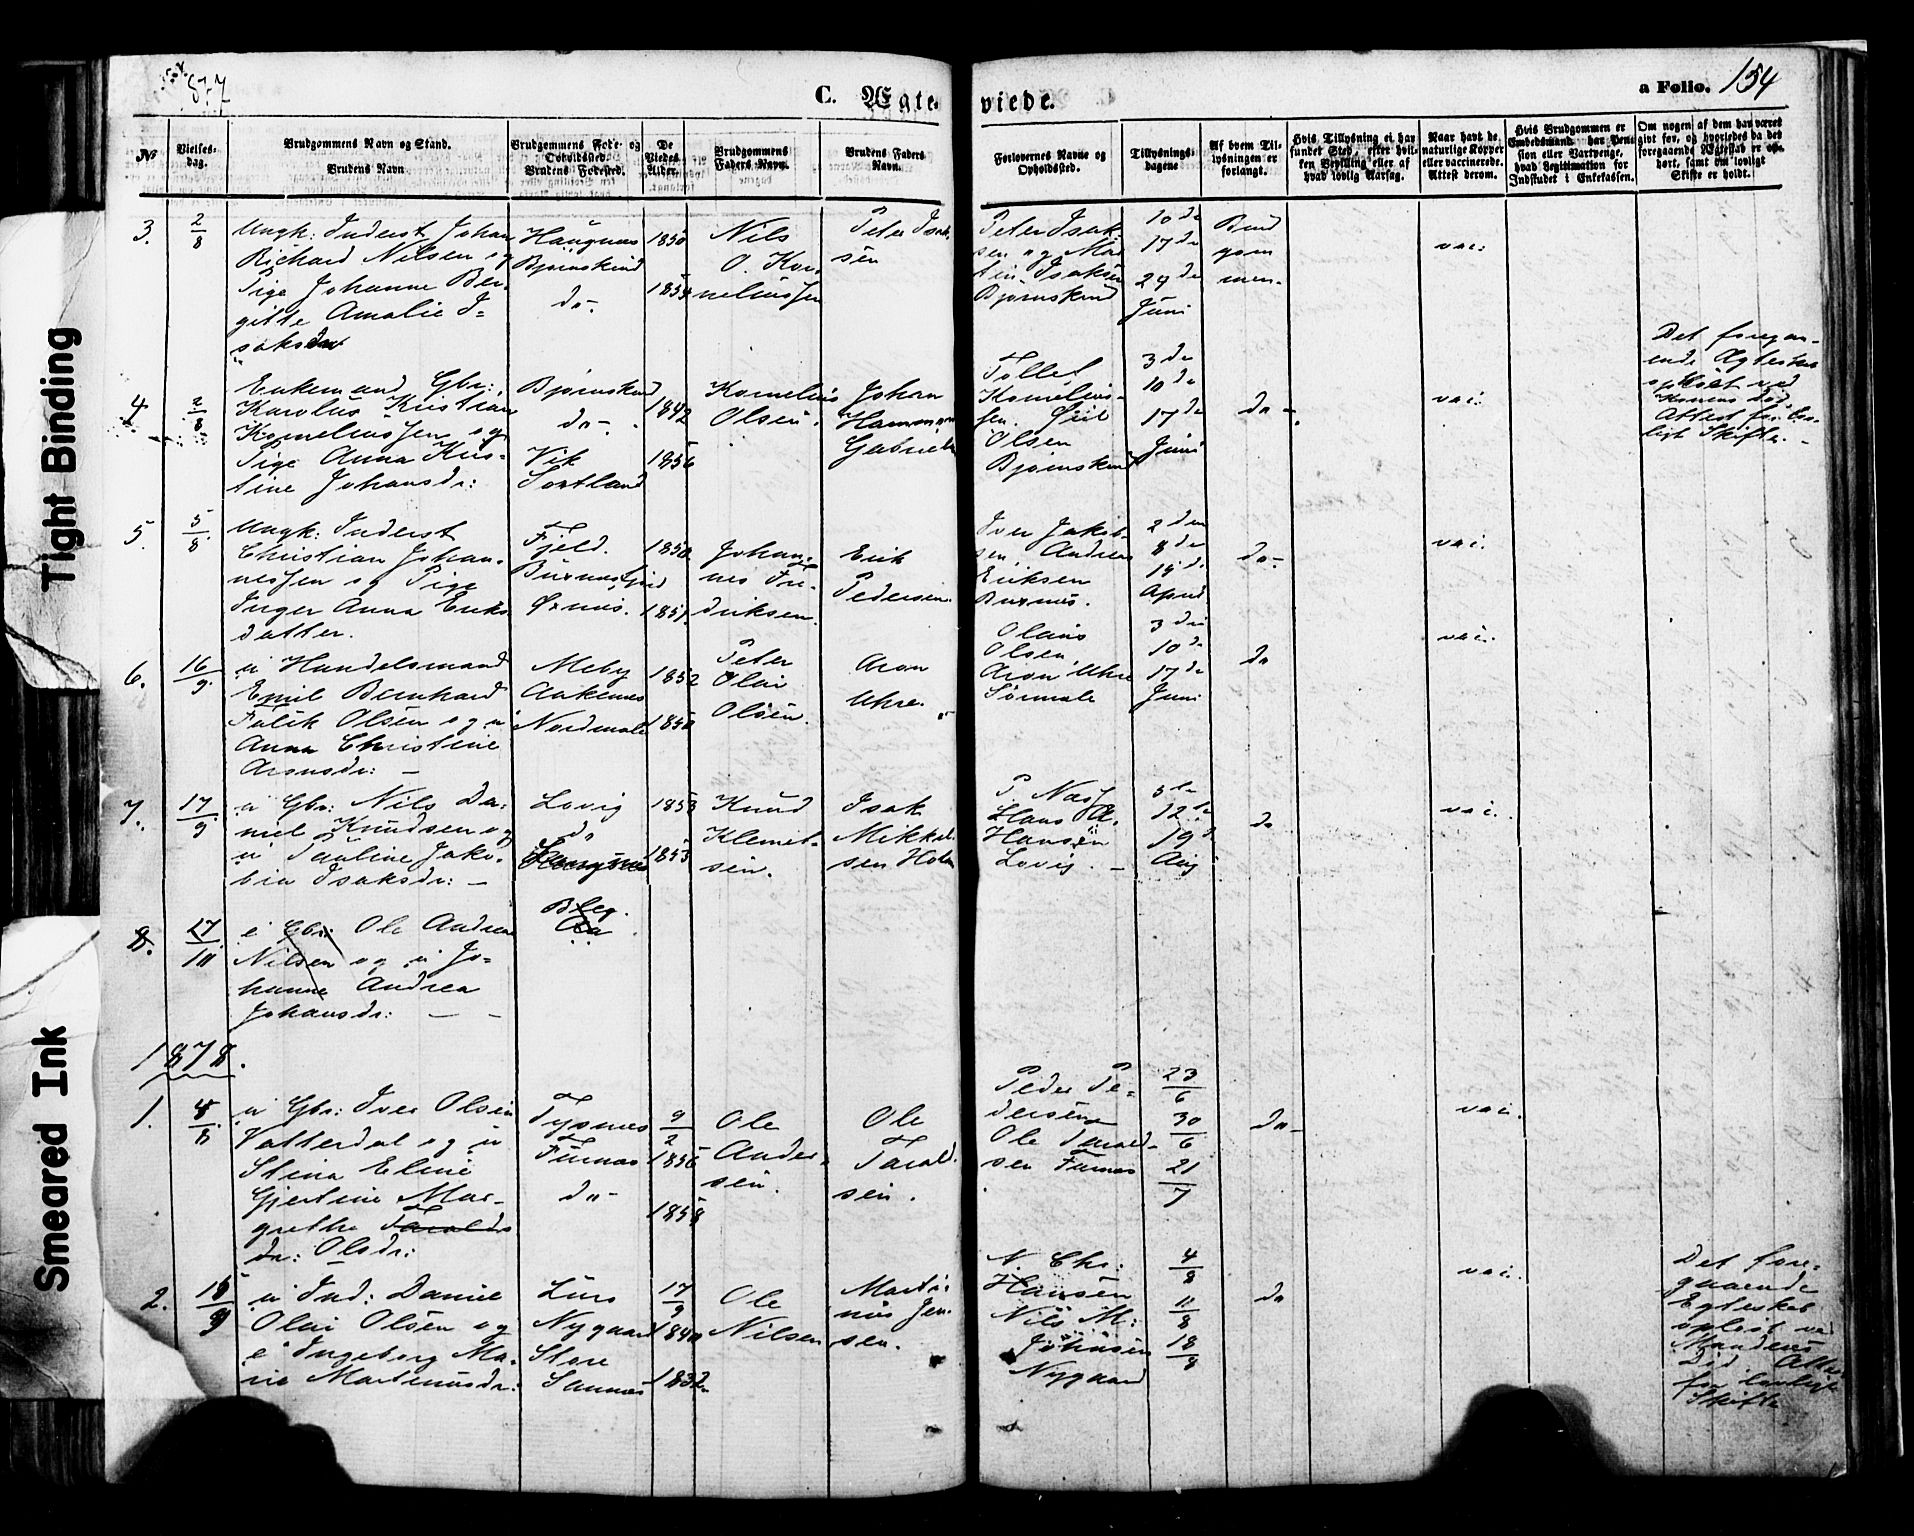 Tight Binding
Smeared Ink
877
C. Ægte-
viede.
a Folio. 154
No
Vielses-
dag.
Brudgommens Navn og Stand.
Brudens Navn
Brudgommens Føde- og
Opholdssted.
Brudens Fødested.
De
Viedes
Alder.
Brudgommens
Faders Navn.
Brudens Faders
Navn.
Forlovernes Navne og
Opholdssted.
Tillysnings-
dagene
Af hvem Til-
lysningen er
forlangt.
Hvis Tillysning ei har
fundet Sted, efter hvil-
ken Bevilling eller af
hvad lovlig Aarsag.
Naar havt de
naturlige Kopper
eller vaccinerede.
Attest derom.
Hvis Brudgommen er
Embedsmand, har Pen-
sion eller Vartpenge,
hvad Legitimation for
Indskudet i Enkekassen.
Om nogen af dem har været
gift før, og hvorledes da det
foregaaende Ægteskab er op-
hørt, samt om lovligt
Skifte er holdt.
3.
2/8
Ungk: Inderst Johan
Richard Nilsen og
Pige Johanne Ber-
gitte Amalie I-
saksdat
Haugnes
Bjørnskind
do -
1850
1854
Nils
O. Kor-
neliussen
Peter Isak-
sen
Peter Isak-
sen og Mar
tin Isaksen
Bjørnskind
10de
17de
24de
Juni
Brud
gom
men -
vac:
4
2/8
Enkemand Gbr:
Karolus Kristian
Korneliussen og
Pige Anna Kris-
tine Johansdr:
Bjørnskind
do -
Vik
Sortland
1842
1856
Kornelius
Olsen.
Johan
Gabriel
Tollef
Kornelius-
sen.
Olsen
Bjørnskind
3de
10de
17de
Juni
do -
vac:
Det foregaa-
ende Ægteskab
opløst ved
Konens Død
Attest for lov-
ligt Skifte. -
5.
5/8
Ungk: Inderst
Christian Johan-
nessen og Pige
Inger Anna Eriks
datter.
Fjeld.
Buxnesfjord
Øxnes.
1850
1851.
Johan-
nes Fre-
driksen.
Erik
Pedersen.
Iver Jakob-
sen, Andreas
Eriksen
Buxnes.
2den
8de
15de
April
do -
vac.
6.
16/9
u Handelsmand
Emil Bernhard
Falck Olsen og u
Anna Christine
Aronsdr: -
Meby
Aakenes
Nordmale
1852
1850
Peter
Olai
Olsen.
Aron
Uhre.
Olaus
Olsen
Aron Uhre
Sørmale
3die
10de
17de
Juni
do
vac.
7.
17/9
u Gbr: Nils Da-
niel Knudsen og
u Pauline Jako-
bia Isaksdr: -
Lovig
do
1853
1853
Knud
Klemet-
sen.
Isak
Mikkel-
sen Holm
P. Næss
Hans A.
Hansen
Lovig. -
5te
12te
19de
Aug
do
vac.
8.
27/10
e Gbr: Ole Andreas
Nilsen og u Jo-
hanne Andrea
Johansdr: - -
Bleg.
Aa
1878.
1.
4/8
u Gbr: Iver Olsen
Vatterdal og u
Stina Eline
Gjertine Mar-
grethe Taralds
dr: Olsdr:
Tysnes
Furnes
do -
9/2
1856
1858
Ole
Ander-
sen.
Ole
Tarald-
sen.
Peder Pe-
dersen
Ole Tarald-
sen Furnes
23/6
30/6
21/7
do -
vac.
2.
15/9
u Ind: Daniel
Olai Olsen og
e Ingeborg Ma-
rie Martinusdr:
Lurs
Nygaard
Store
Sannes
17/9
1840
1832
Ole
Nilsen
Marti-
nus Jen-
sen.
N. Chr:
Hansen
Nils M:
Johnsen
Nygaard
4/8
11/8
18/8
do
vac.
Det fore-
gaaende
Egteskab
opløst ved
Mandens
Død. Attest
for lovligt
Skifte